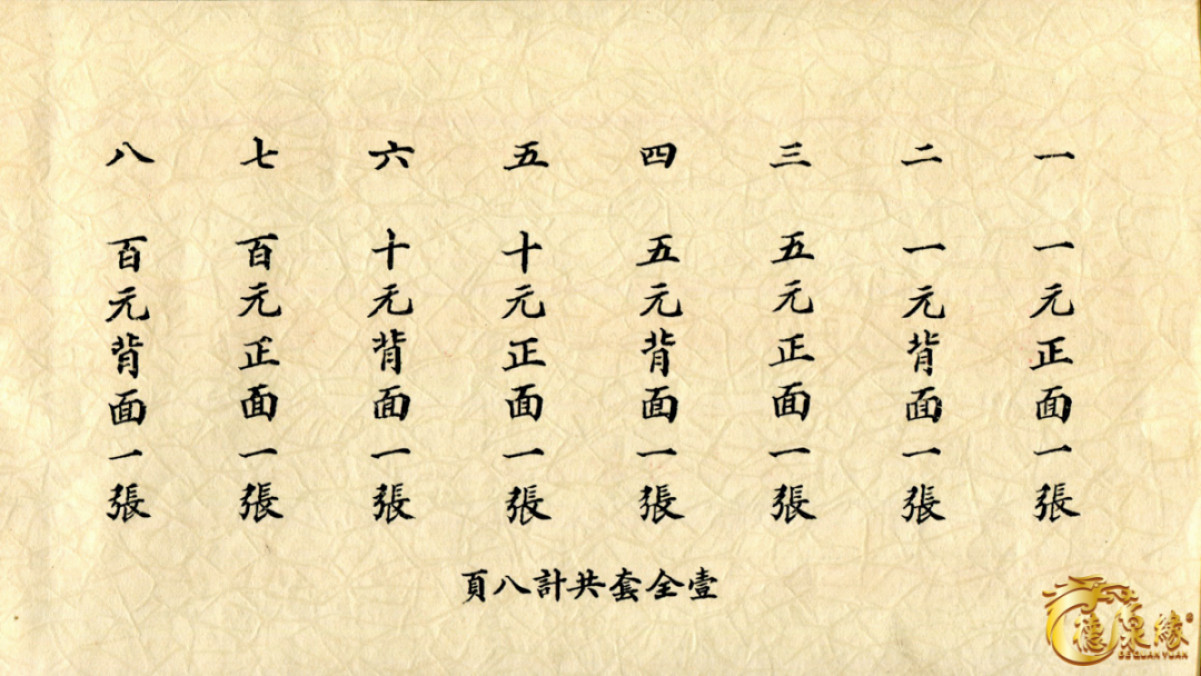 一 一元正面一張
二 一元背面一張
三 五元正面一張
四 五元背面一張
五 十元正面一張
六 十元背面一張
七 百元正面一張
八 百元背面一張
壹全套共計八頁
德泉緣
DE QUAN YUAN